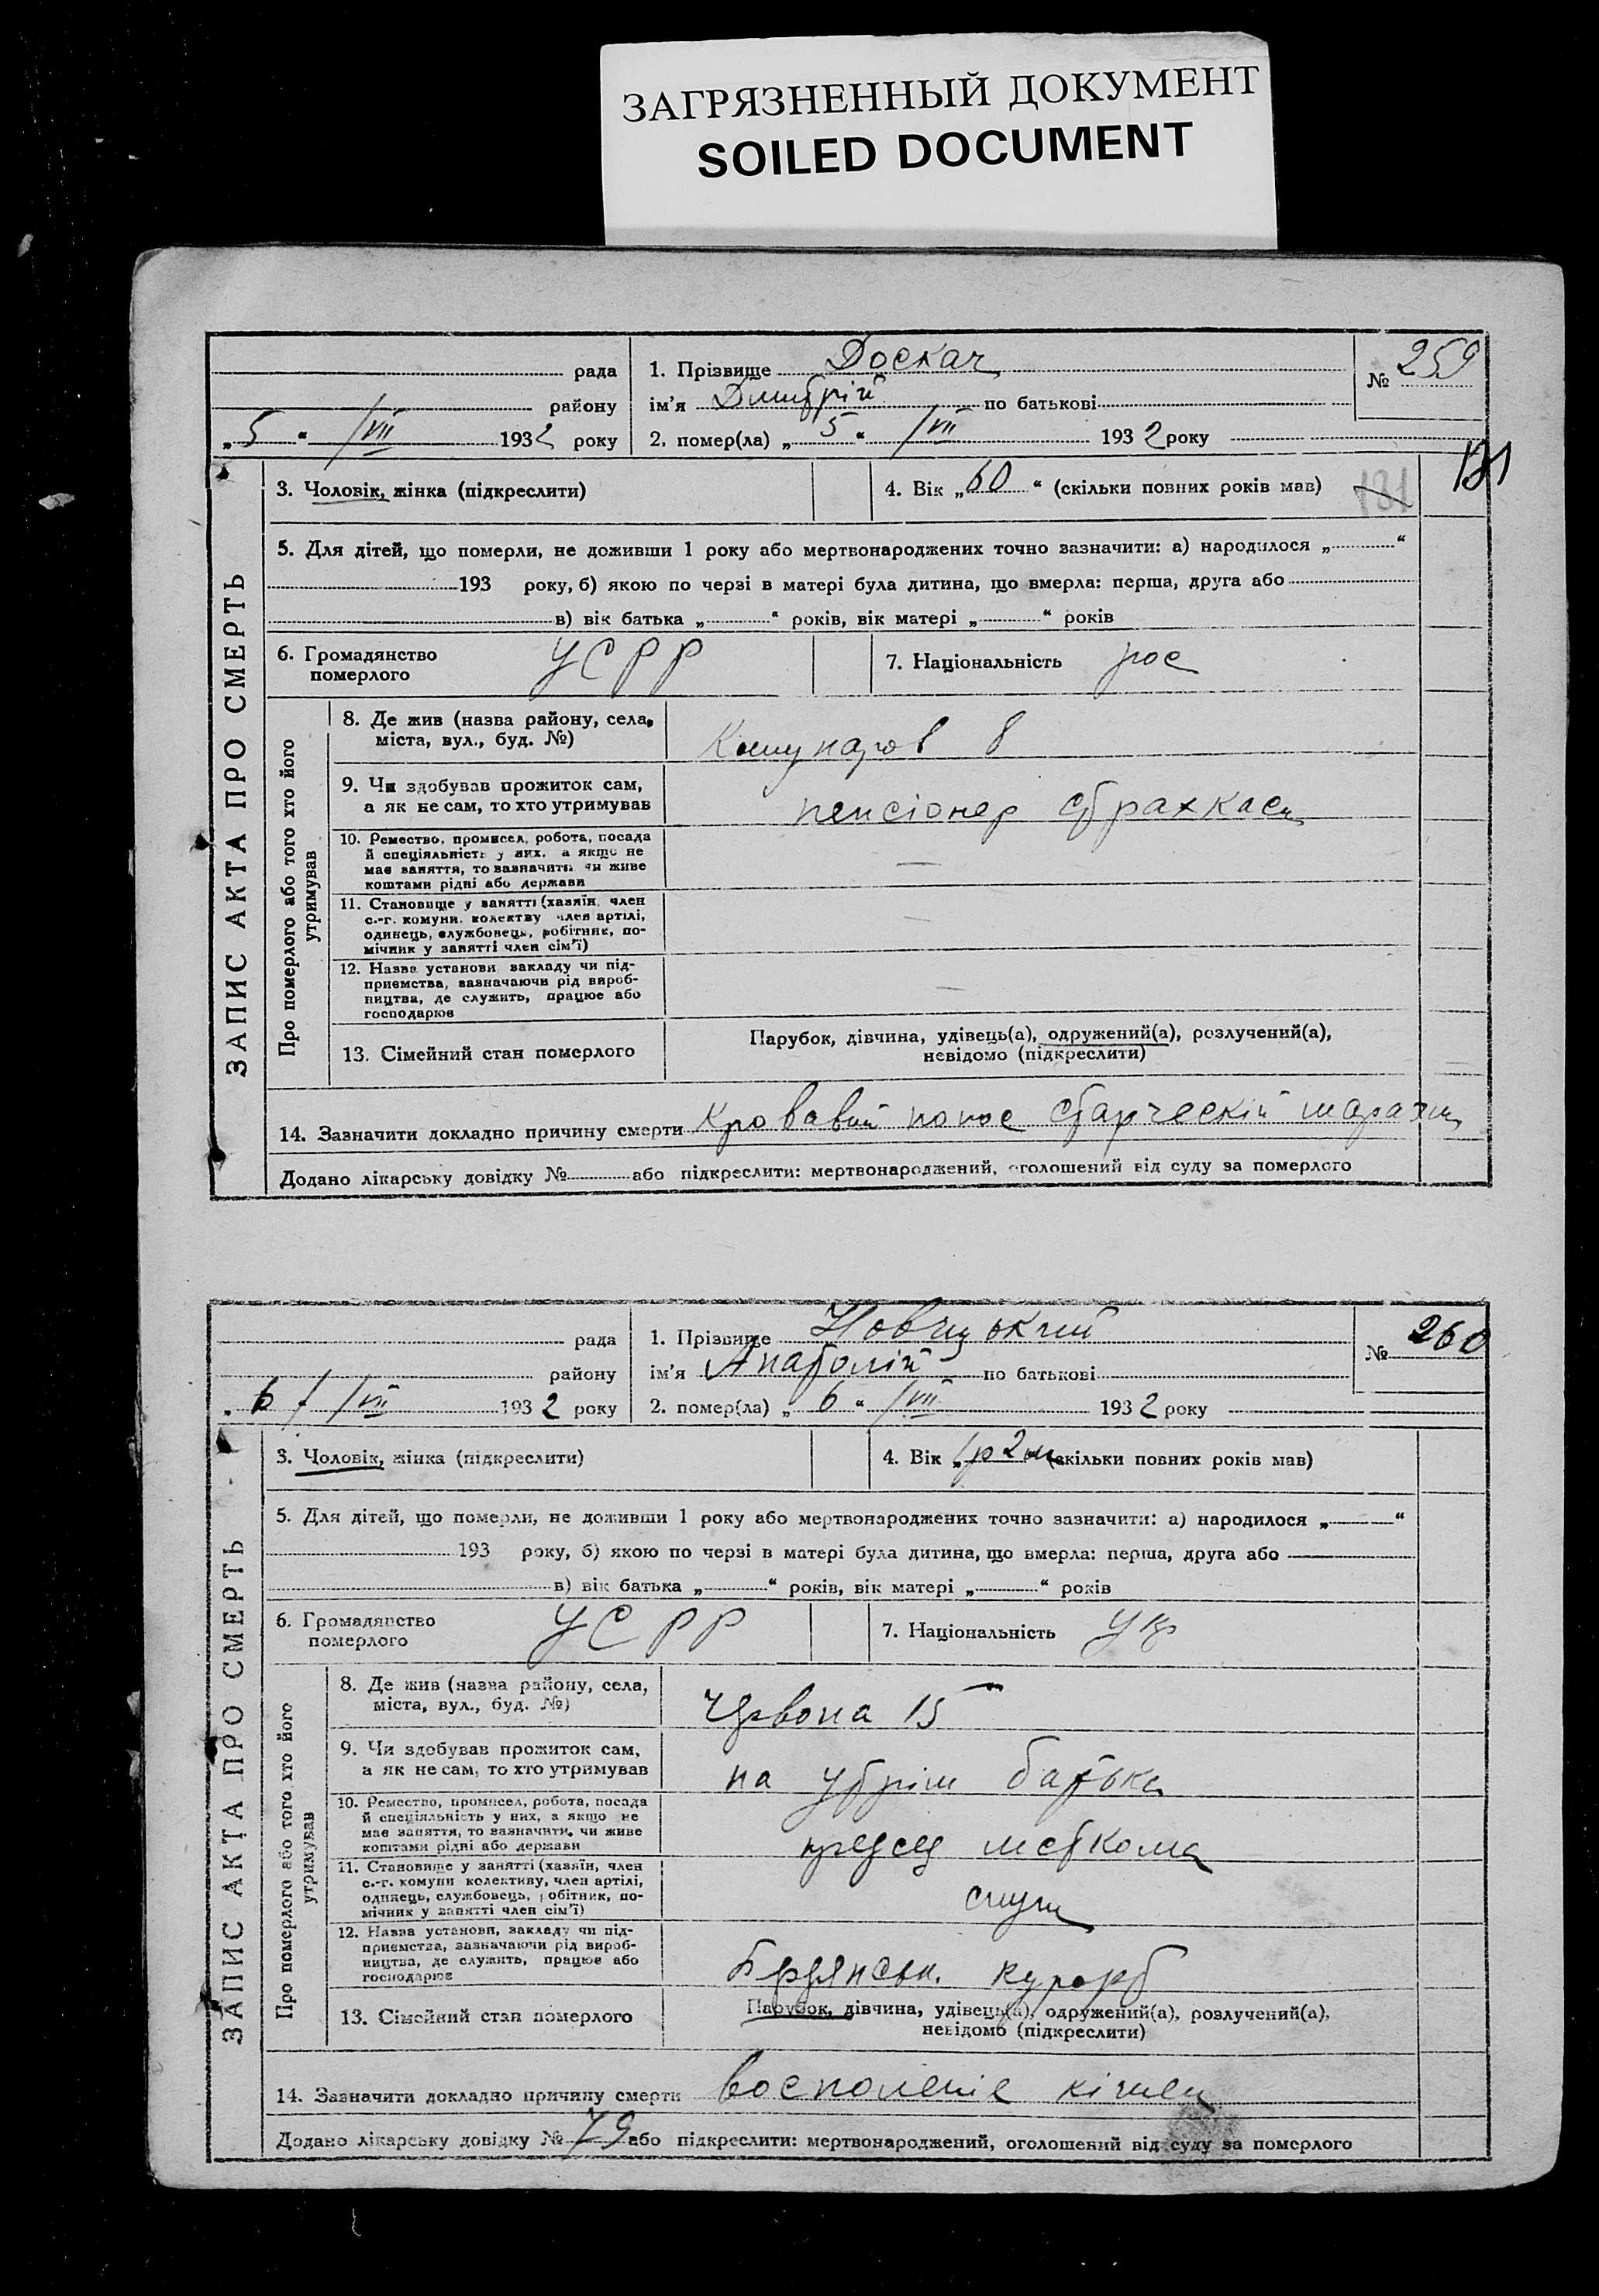 ЗАГРЯЗНЕННЫЙ ДОКУМЕНТ
SOILED DOCUMENT
рада
району
„ 5 “ /VII 1932 року
1. Прізвище Доскач
ім’я Дмитрій по батькові
2. помер(ла) „ 5 “ /VII 1932 року
№ 259
131
ЗАПИС АКТА ПРО СМЕРТЬ
3. Чоловік, жінка (підкреслити)
4. Вік „ 60 “ (скільки повних років мав)
131
5. Для дітей, що померли, не доживши 1 року або мертвонароджених точно зазначити: а) народилося „ “
193 року, б) якою по черзі в матері була дитина, що вмерла: перша, друга або
в) вік батька „ “ років, вік матері „ “ років
6. Громадянство померлого УСРР
7. Національність рос
Про померлого або того хто його утримував
8. Де жив (назва району, села,
міста, вул., буд. №)
Комунаров 8
9. Чи здобував прожиток сам,
а як не сам, то хто утримував
пенсіонер страхкаси
10. Ремество, промисел, робота, посада
й спеціяльність у них, а якщо не
має заняття, то зазначити чи живе
коштами рідні або держави
—
11. Становище у занятті (хазяїн, член
с.-г. комуни, колективу член артілі,
одинець, службовець, робітник, по-
мічник у занятті член сім’ї)
12. Назва установи закладу чи під-
приємства, зазначаючи рід вироб-
ництва, де служить, працює або
господарює
—
13. Сімейний стан померлого
Парубок, дівчина, удівець(а), одружений(а), розлучений(а),
невідомо (підкреслити)
14. Зазначити докладно причину смерти Кровавий понос старческій
Додано лікарську довідку № або підкреслити: мертвонароджений, оголошений від суду за померлого
рада
району
„ 6 /VII 1932 року
1. Прізвище
ім’я Анатолій по батькові
2. помер(ла) „ 6 “ /VII 1932 року
№ 260
ЗАПИС АКТА ПРО СМЕРТЬ
3. Чоловік, жінка (підкреслити)
4. Вік „ 1р 2м (скільки повних років мав)
5. Для дітей, що померли, не доживши 1 року або мертвонароджених точно зазначити: а) народилося „ “
193 року, б) якою по черзі в матері була дитина, що вмерла: перша, друга або
в) вік батька „ “ років, вік матері „ “ років
6. Громадянство померлого УСРР
7. Національність укр
Про померлого або того хто його утримував
8. Де жив (назва району, села,
міста, вул., буд. №)
Червона 15
9. Чи здобував прожиток сам,
а як не сам, то хто утримував
на утрім батька
10. Ремество, промисел, робота, посада
й спеціяльність у них, а якщо не
має заняття, то зазначити, чи живе
коштами рідні або держави
председ месткома
11. Становище у занятті (хазяїн, член
с.-г. комуни колективу, член артілі,
одинець, службовець, робітник, по-
мічник у занятті член сім’ї)
12. Назва установи, закладу чи під-
приємства, зазначаючи рід вироб-
ництва, де служить, працює або
господарює
Бердянськ. курорт
13. Сімейний стан померлого
Парубок, дівчина, удівець(а), одружений(а), розлучений(а),
невідомо (підкреслити)
14. Зазначити докладно причину смерти восполеніе кішеч
Додано лікарську довідку № 79 або підкреслити: мертвонароджений, оголошений від суду за померлого